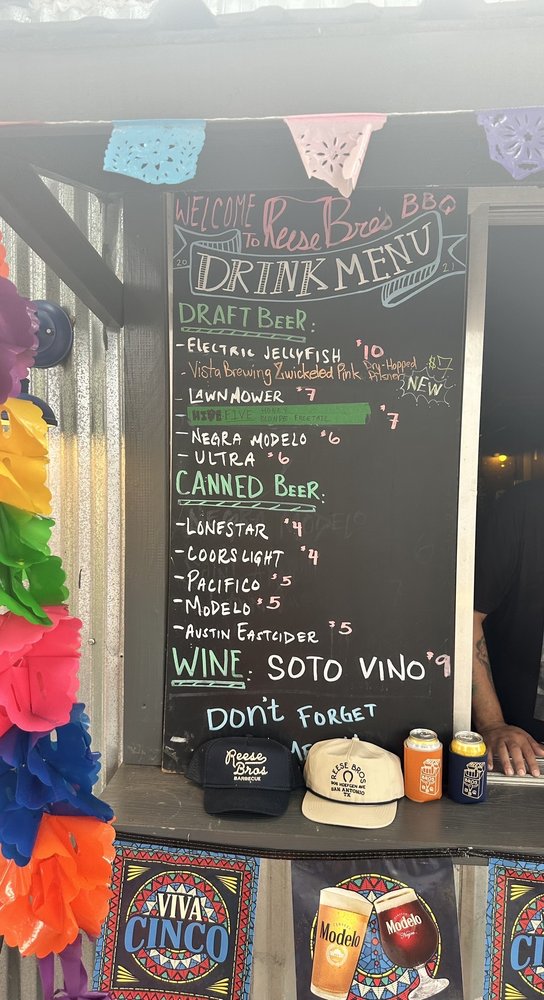 WELCOME TO Reese Bro's BBQ
20 DRINK MENU 21
DRAFT BEER:
- ELECTRIC JELLYFISH $10
- Vista Brewing Zwickeled Pink Dry-Hopped Pilsner $7
NEW
- LAWNMOWER $7
- HIGH FIVE HONEY BLONDE - FREETAIL $7
- NEGRA MODELO $6
- ULTRA $6
CANNED BEER:
- LONESTAR $4
- COORS LIGHT $4
- PACIFICO $5
- MODELO $5
- AUSTIN EASTCIDER $5
WINE: SOTO VINO $9
DON'T FORGET
Reese Bros BARBECUE
REESE BROS
906 HOEFGEN AVE
SAN ANTONIO
TX
VIVA CINCO
Modelo
Modelo
Negra